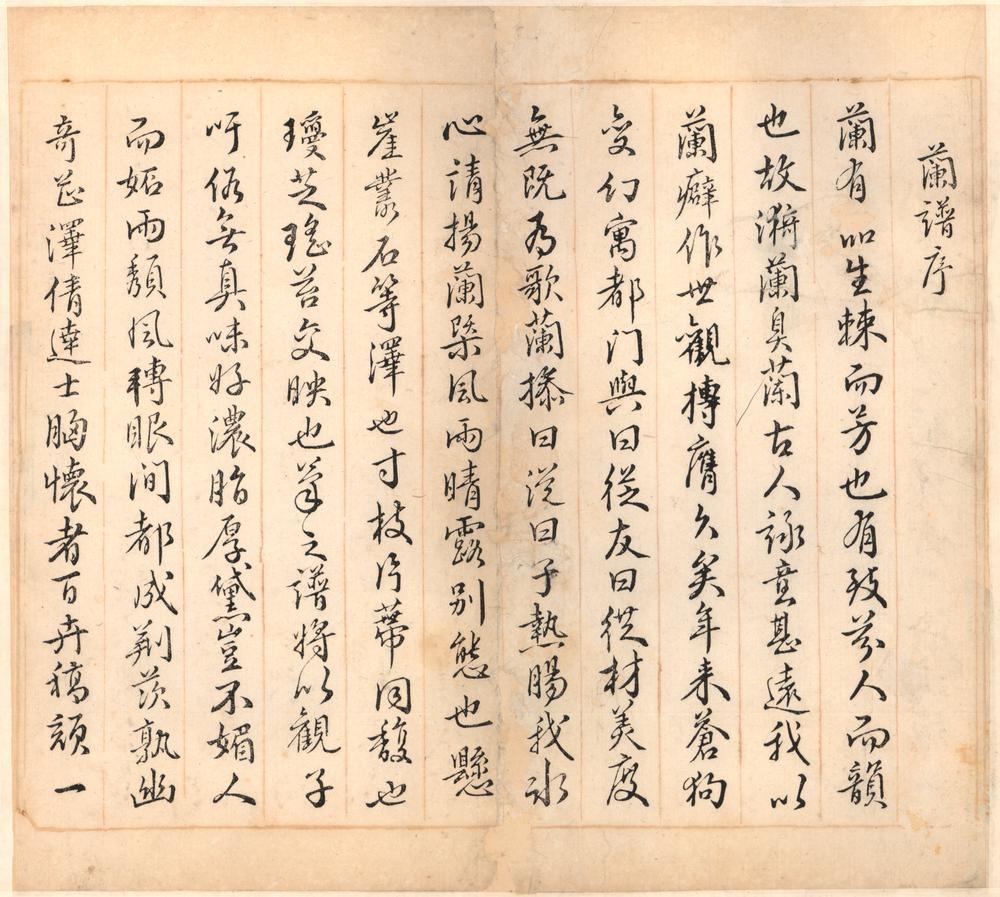 蘭譜序
蘭有叢生棘而芳也有致茲人而韻
也故漪蘭臭蘭古人詠意甚遠我以
蘭癖作世觀摶膺久矣年来蒼狗
変幻寓都门與曰從友曰從材美度
無既為歌蘭操曰淀曰子熱腸我冰
心請揚蘭槩風雨晴露別態也懸
崖叢石等澤也寸枝片蒂同馥也
瓊芝瑤苔交映也筆之譜將以觀子
吁俗无真味好濃脂厚黛豈不媚人
而妬雨頹風轉眼间都成荆茨孰幽
奇芯澤倩達士胸懷者百卉稿顔一